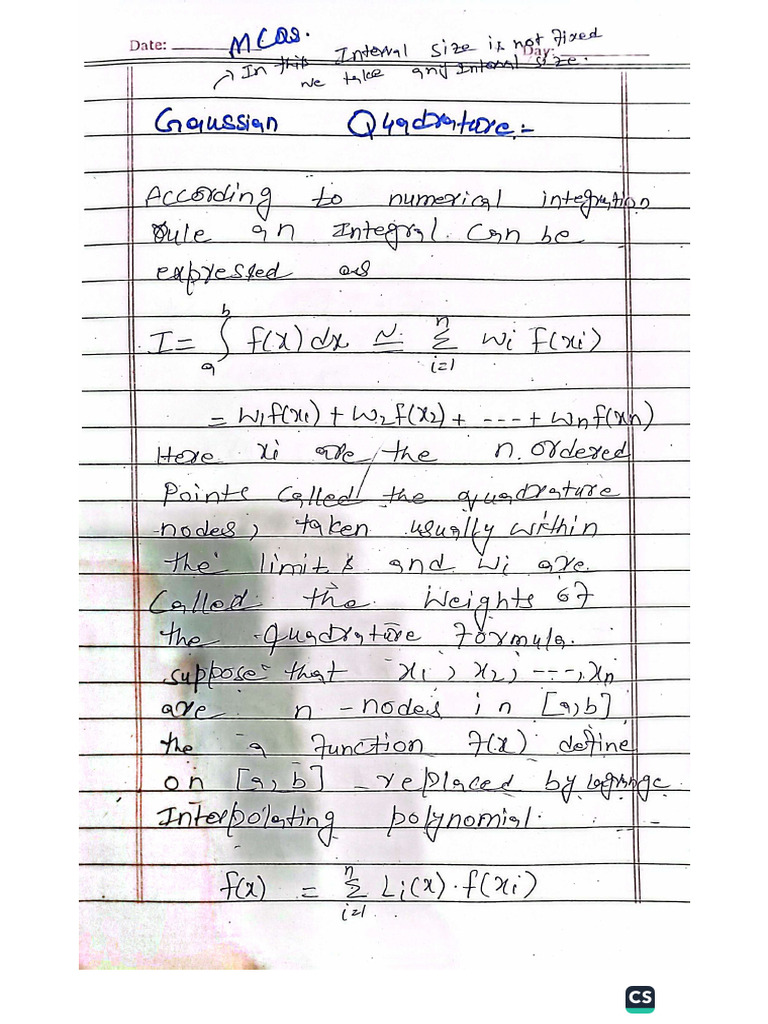 Date: MCQs.
→ In this Interval size is not fixed
Day:
we take any Interval size.
Gaussian Quadrature:-
According to numerical integration
rule an Integral can be
expressed as
I = ∫_a^b f(x) dx ≅ Σ_{i=1}^n wi f(xi)
= w1f(x1) + w2f(x2) + ---- + wnf(xn)
Here xi are the n. ordered
Points called the quadrature
nodes, taken usually within
the limits and wi are
called the weights of
the quadrature formula.
suppose that x1, x2, ---, xn
are n - nodes in [a,b]
the a function f(x) define
on [a, b] replaced by lagrange
Interpolating polynomial.
f(x) = Σ_{i=1}^n Li(x)·f(xi)
CS